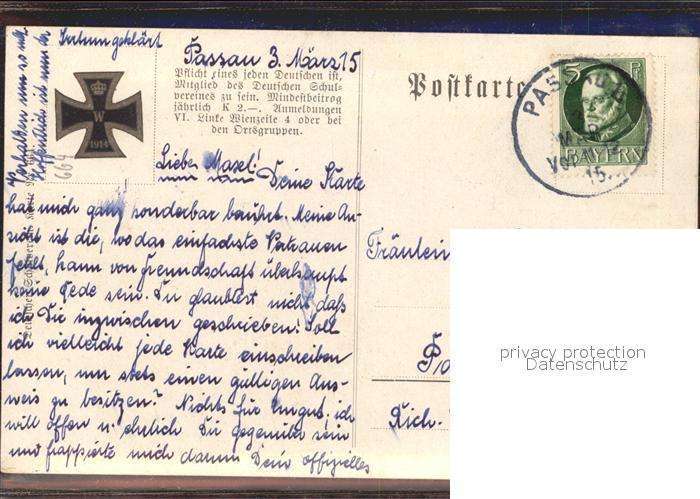 Irrtum geklärt
Passau 3. März 15
Pflicht eines jeden Deutschen ist,
Mitglied des Deutschen Schul-
vereines zu sein. Mindestbeitrag
jährlich K 2.—. Anmeldungen
VI. Linke Wienzeile 4 oder bei
den Ortsgruppen.
Postkarte
W
1914
664
PASSAU
MAR
15.
5 Pf
BAYERN
Lieber Maxl! Deine Karte
hat mich ganz sonderbar berührt. Meine An-
sicht ist die, wo das einfachste Vertrauen
fehlt, kann von Freundschaft überhaupt
keine Rede sein. Du glaubtest nicht, daß
ich Dir inzwischen geschrieben! Soll
ich vielleicht jede Karte einschreiben
lassen, um stets einen gültigen Aus-
weis zu besitzen? Nichts für ungut, ich
will offen u. ehrlich Dir gegenüber sein
und frappierte mich darum Dein offizielles
Verhalten nun so mehr.
Hoffentlich ist nun der
Fräulein
Rich.
privacy protection
Datenschutz